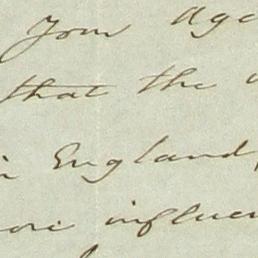 your age
that the
in England,
more influen